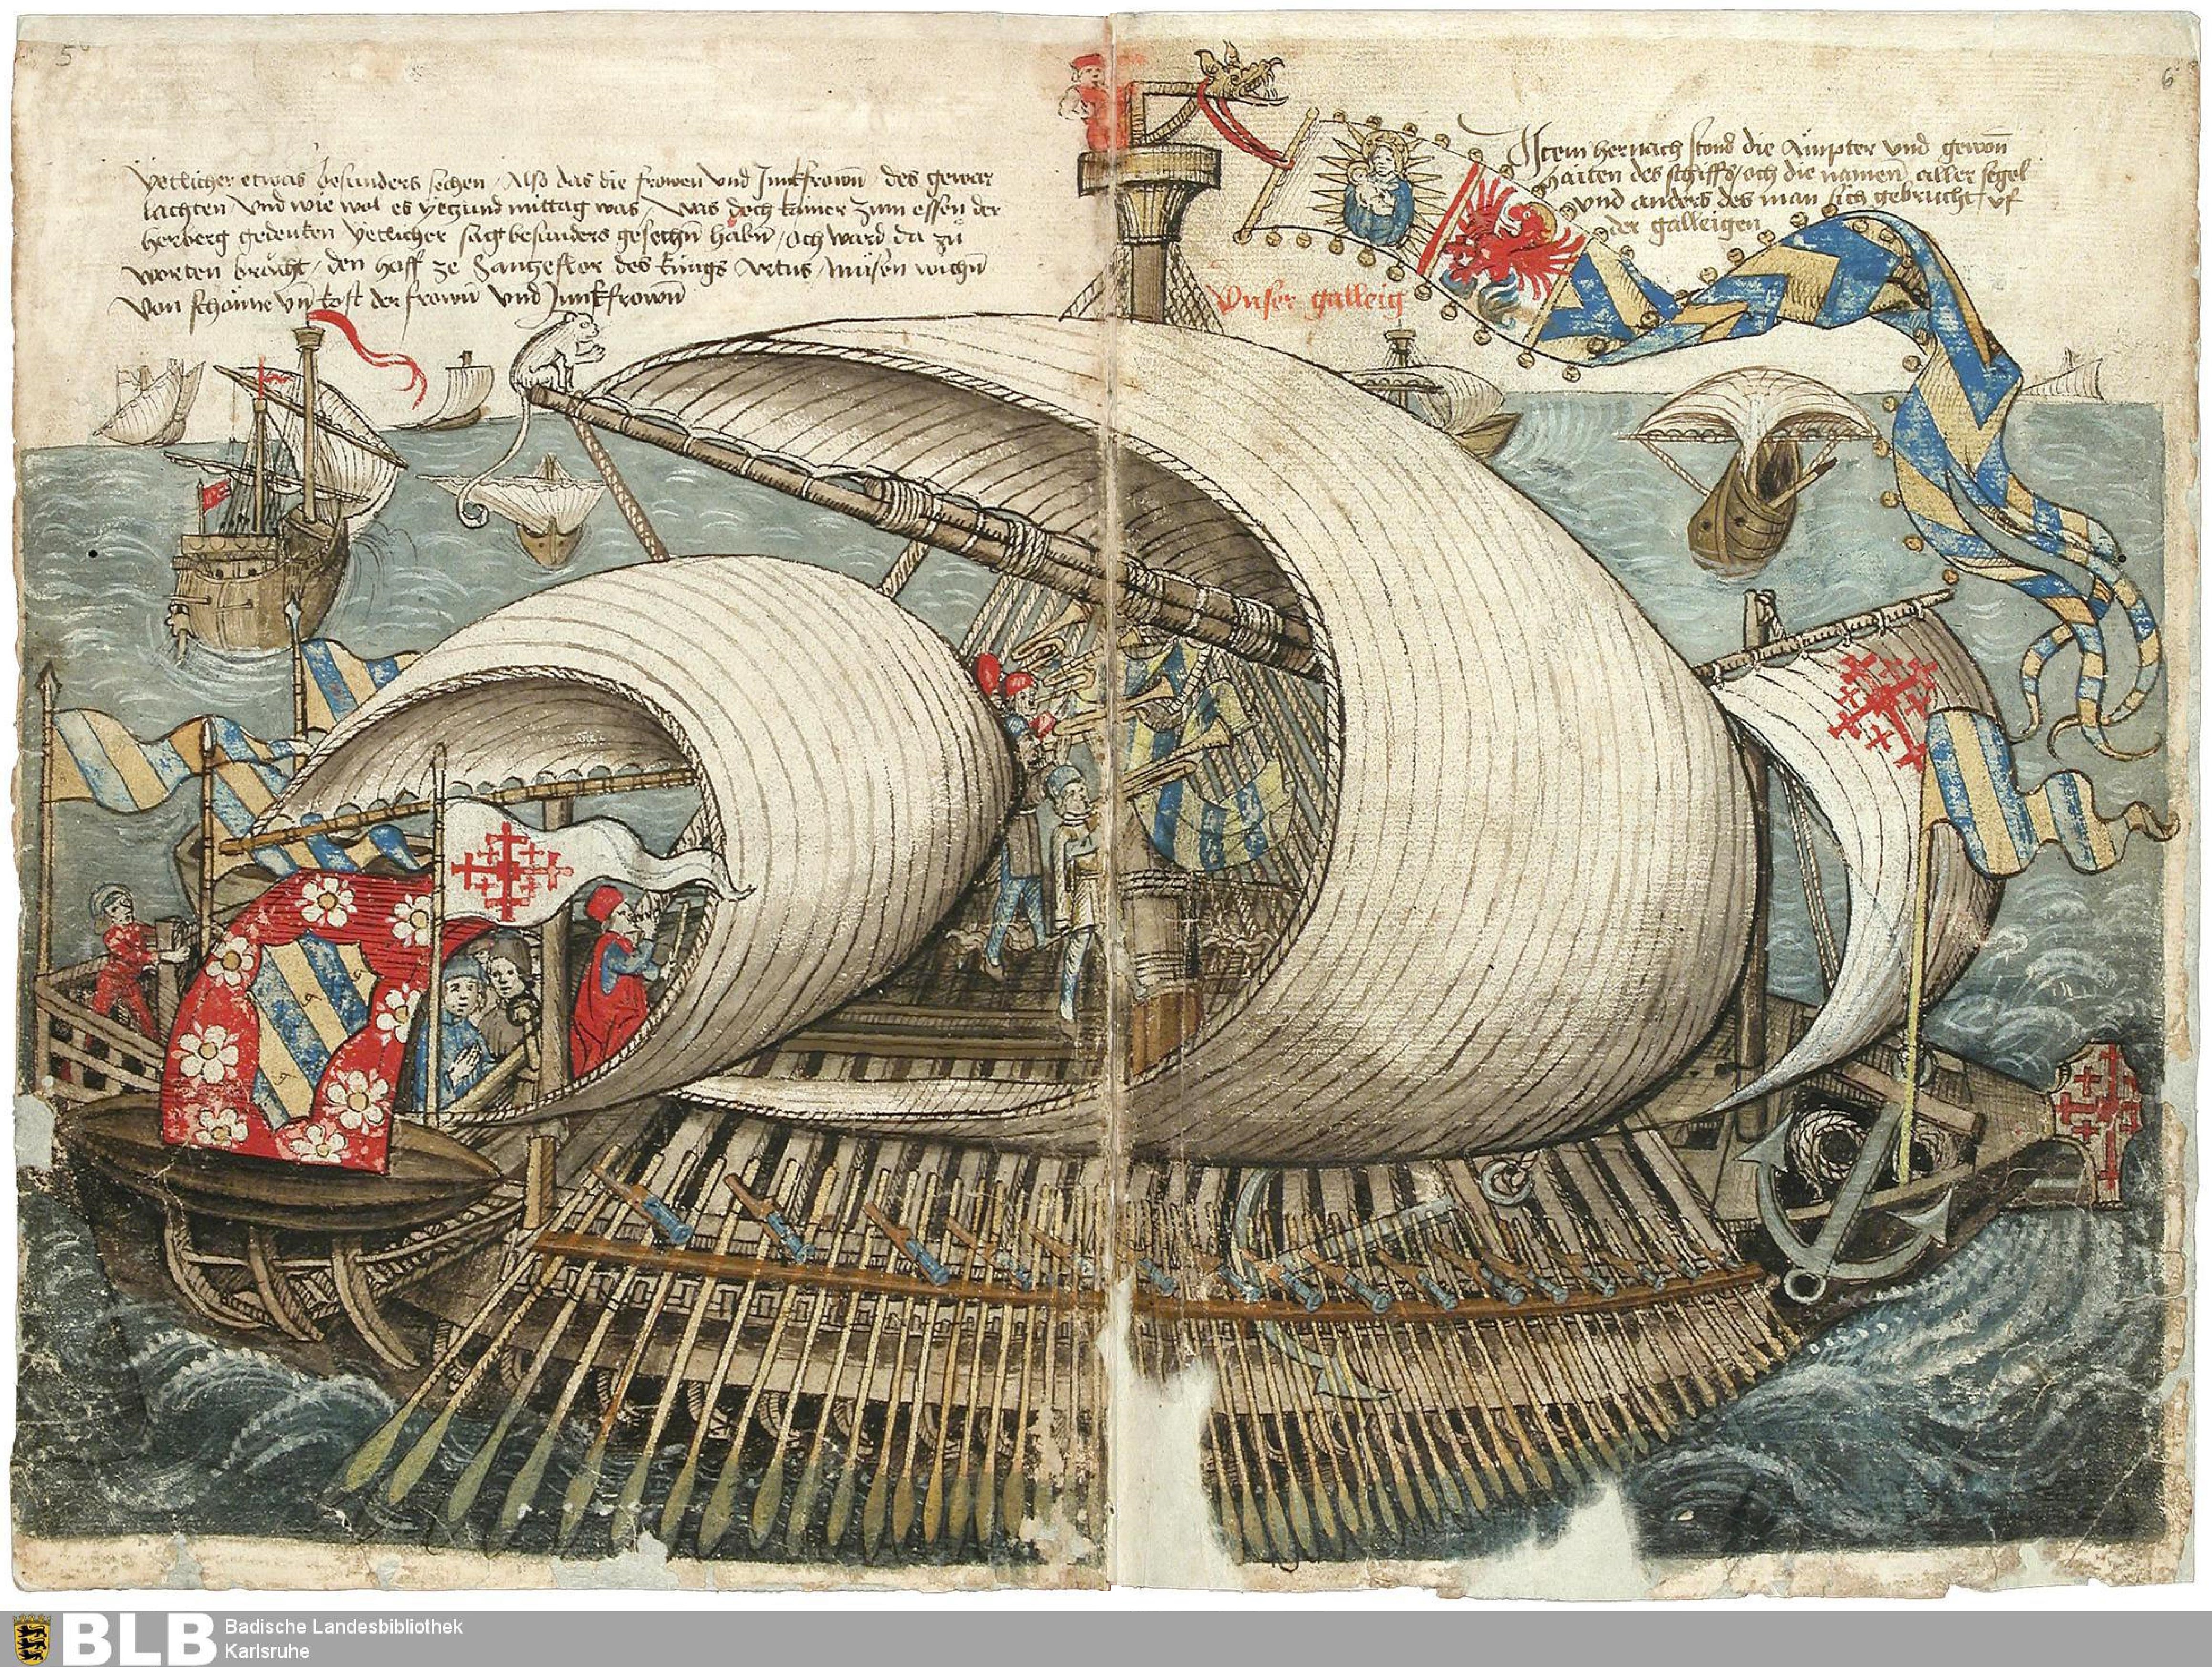 5
yetlicher etwas besunders sechen / Also das die frowen vnd Junkfrowñ / des gewar
lachten / vnd wie wol es yetzund mittag was / was doch kainer zum essen der
herberg gedenken yetlicher sagt besunders gesechñ habñ / och ward da zů
worten bracht / den hoff ze des kungs Artus / můsen wichñ
von schöne vñ kost der frowñ vnd Junkfrowñ
6
Item hernach stond die Ämpter vnd gewoñ
haiten des schiffs / och die namen aller segel
vnd anders des man sich gebrucht vf
der galleigen
Vnser galleig
BLB Badische Landesbibliothek
Karlsruhe